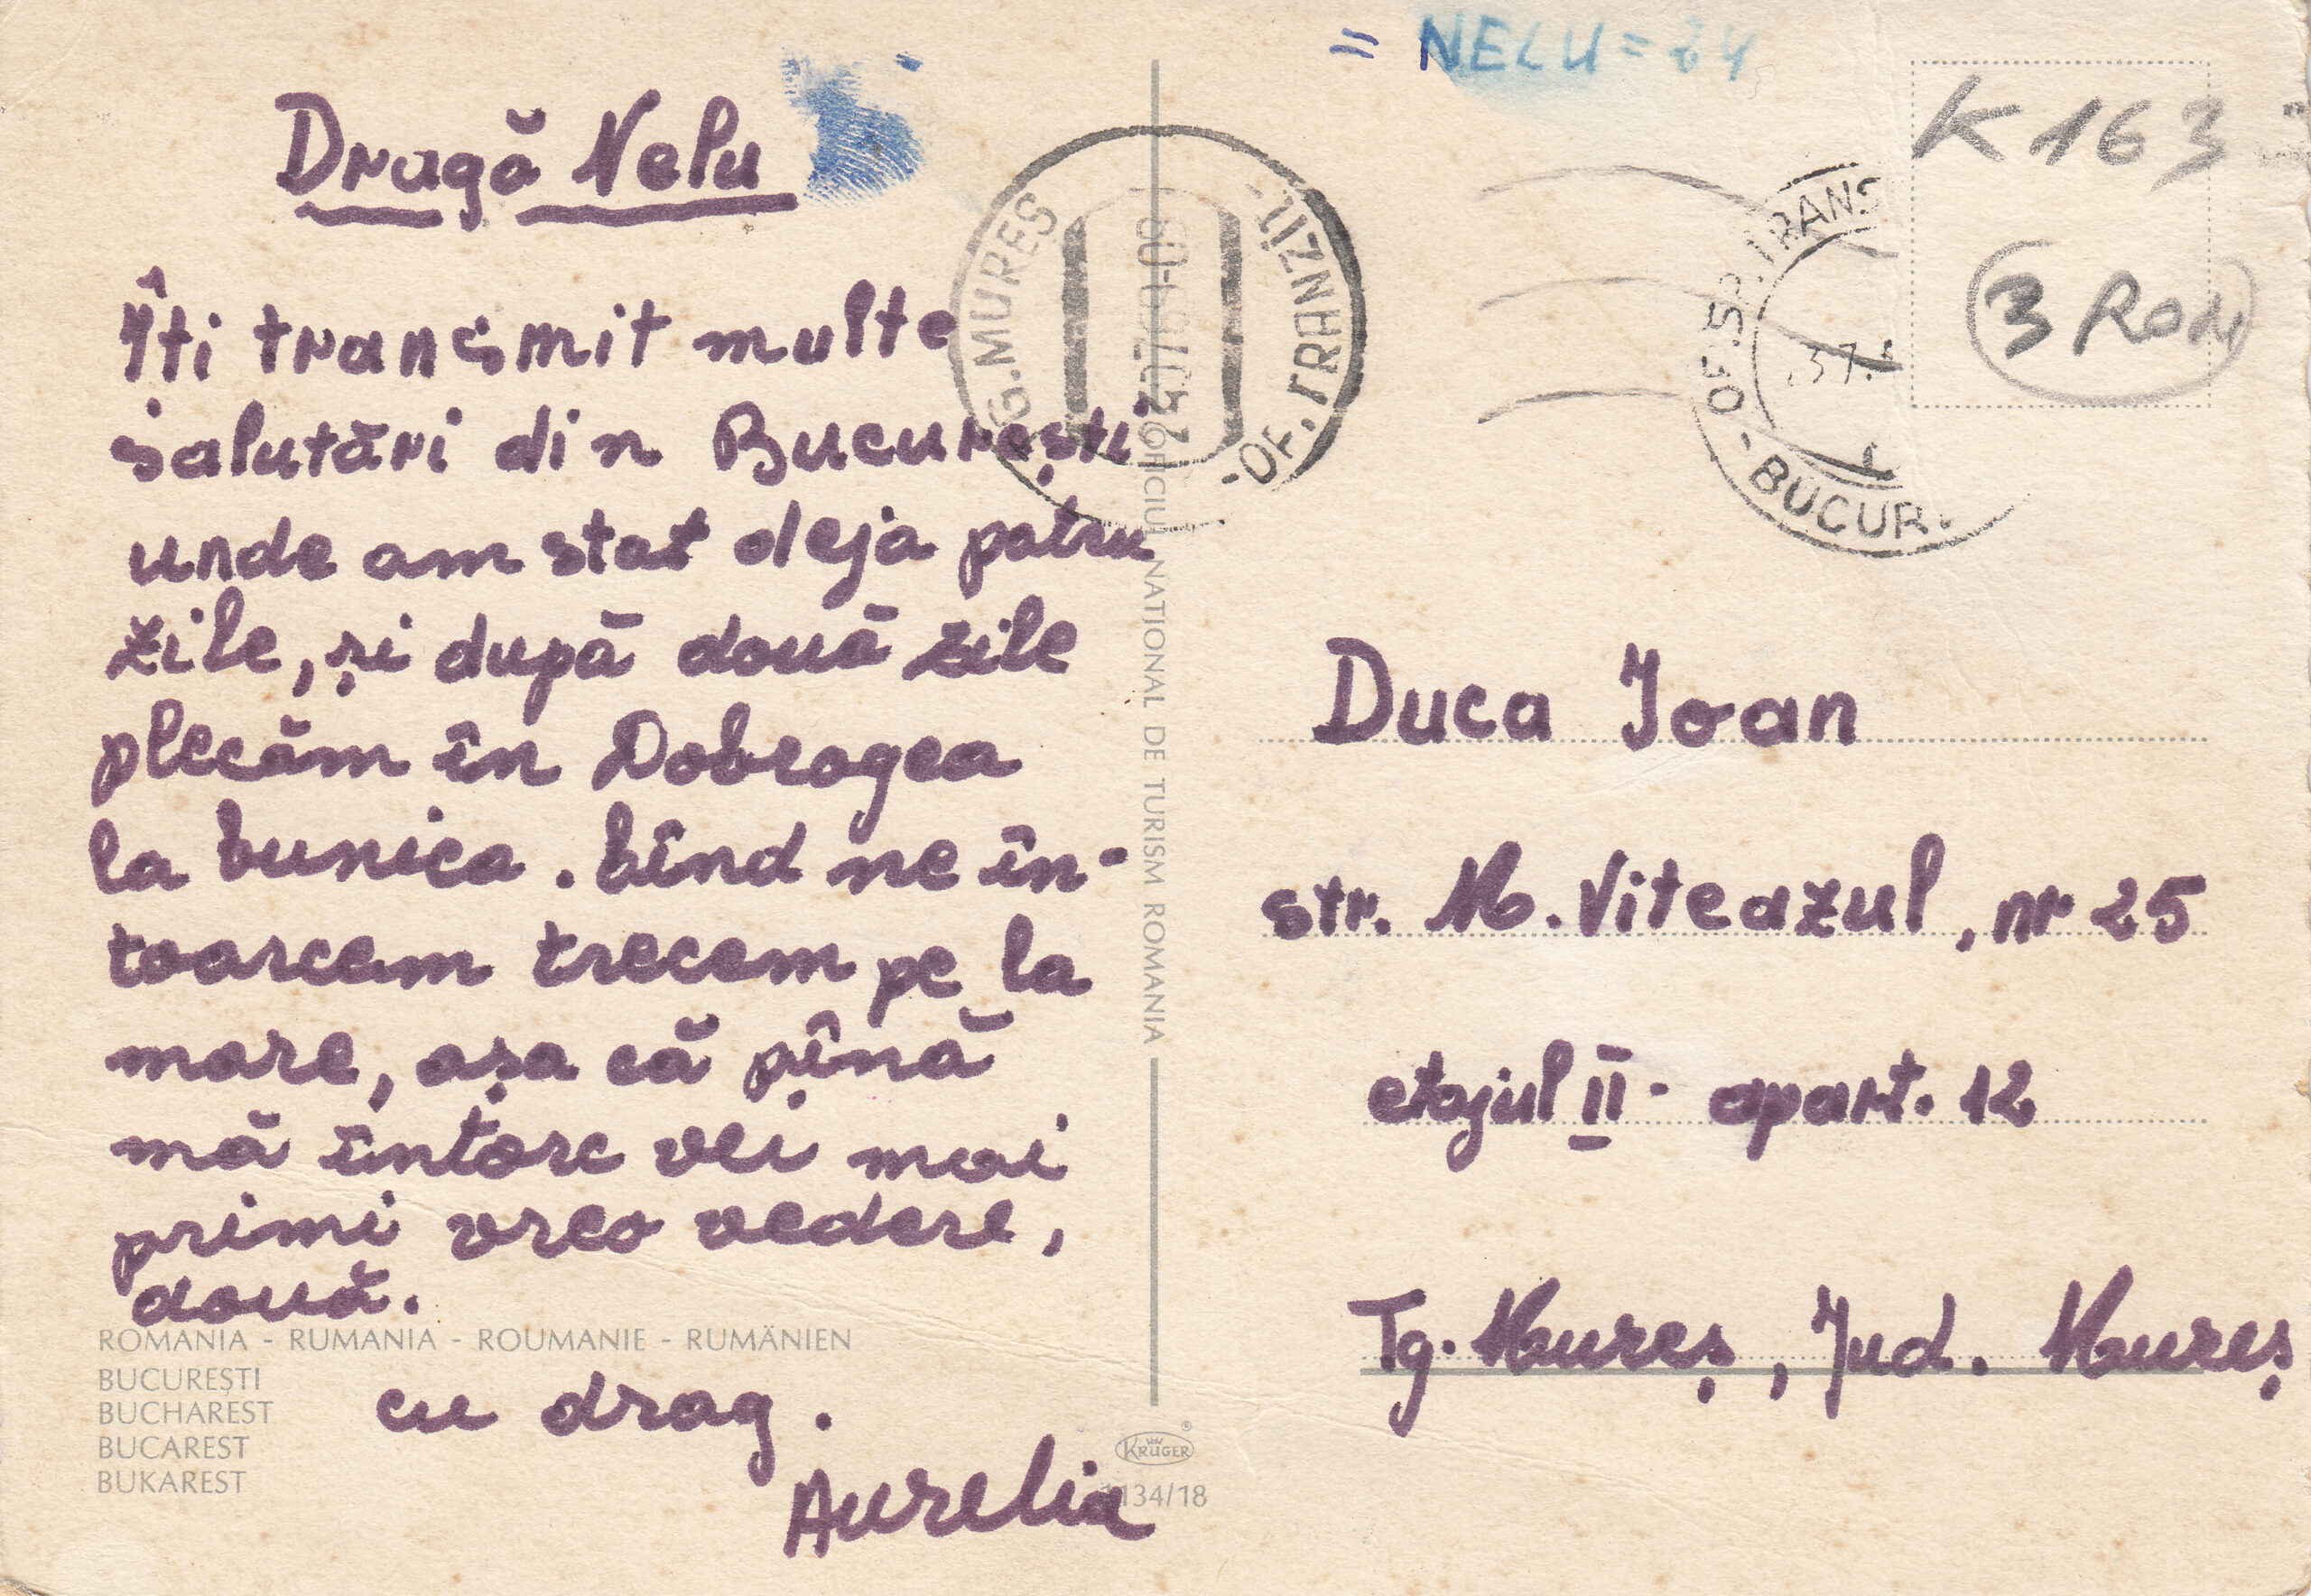 Dragă Nelu
Îți transmit multe
salutări din București
unde am stat deja patru
zile, și după două zile
plecăm în Dobrogea
la bunica. Cînd ne în-
toarcem trecem pe la
mare, așa că pînă
mă întorc vei mai
primi vreo vedere,
două.
cu drag.
Aurelia
ROMANIA - RUMANIA - ROUMANIE - RUMÄNIEN
BUCUREȘTI
BUCHAREST
BUCAREST
BUKAREST
OFICIUL NATIONAL DE TURISM ROMANIA
KRÜGER
1134/18
= NELU = 24
K 163
3 Rodi
TG. MUREȘ
OF. TRANZIT
OF. SP. TRANS
BUCUR.
Duca Ioan
str. M. Viteazul, nr 25
etajul II - apart. 12
Tg. Mureș, Jud. Mureș